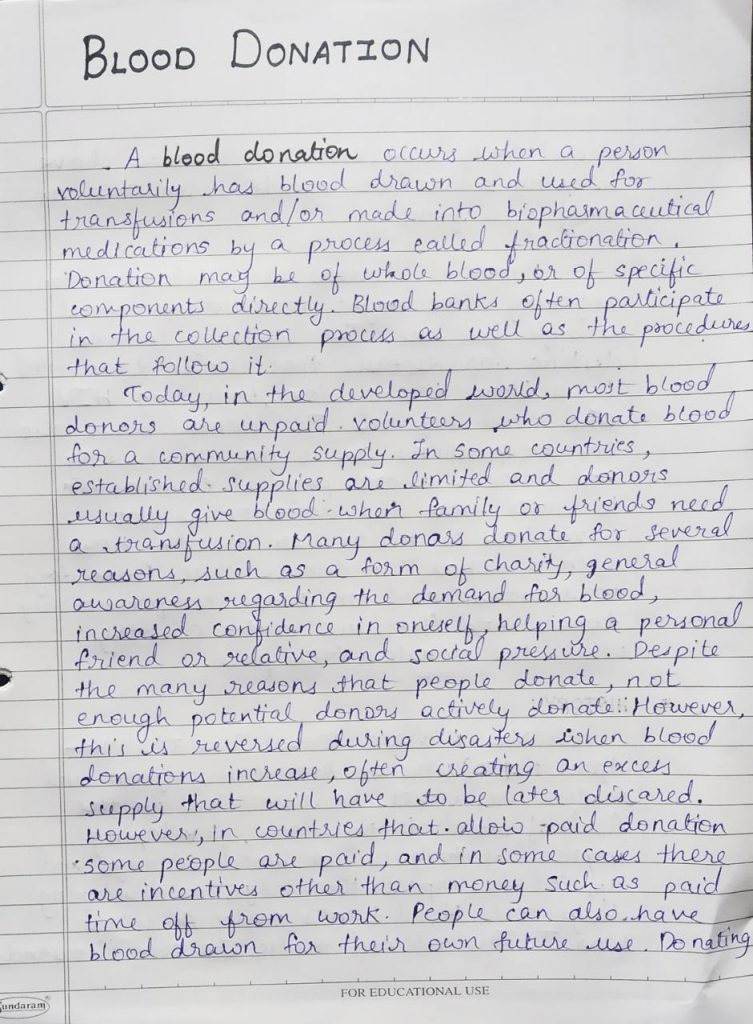 BLOOD DONATION
A blood donation occurs when a person
voluntarily has blood drawn and used for
transfusions and/or made into biopharmaceutical
medications by a process called fractionation.
Donation may be of whole blood, or of specific
components directly. Blood banks often participate
in the collection process as well as the procedures
that follow it.
Today, in the developed world, most blood
donors are unpaid volunteers who donate blood
for a community supply. In some countries,
established supplies are limited and donors
usually give blood when family or friends need
a transfusion. Many donors donate for several
reasons, such as a form of charity, general
awareness regarding the demand for blood,
increased confidence in oneself, helping a personal
friend or relative, and social pressure. Despite
the many reasons that people donate, not
enough potential donors actively donate. However,
this is reversed during disasters when blood
donations increase, often creating an excess
supply that will have to be later discared.
However, in countries that allow paid donation
some people are paid, and in some cases there
are incentives other than money such as paid
time off from work. People can also have
blood drawn for their own future use. Donating
undaram
FOR EDUCATIONAL USE